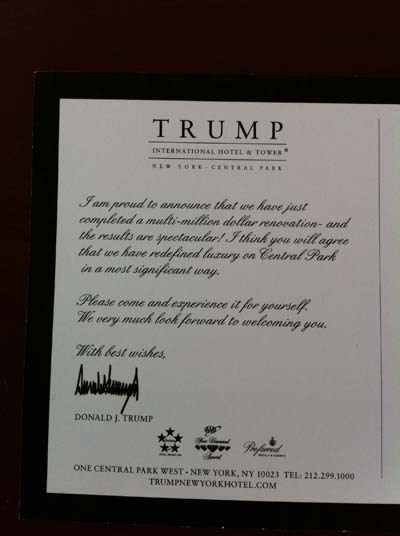 TRUMP
INTERNATIONAL HOTEL & TOWER®
NEW YORK · CENTRAL PARK
I am proud to announce that we have just
completed a multi-million dollar renovation- and
the results are spectacular! I think you will agree
that we have redefined luxury on Central Park
in a most significant way.
Please come and experience it for yourself.
We very much look forward to welcoming you.
With best wishes,
DONALD J. TRUMP
AAA
Five Diamond
Award
Preferred
ONE CENTRAL PARK WEST · NEW YORK, NY 10023 TEL: 212.299.1000
TRUMPNEWYORKHOTEL.COM